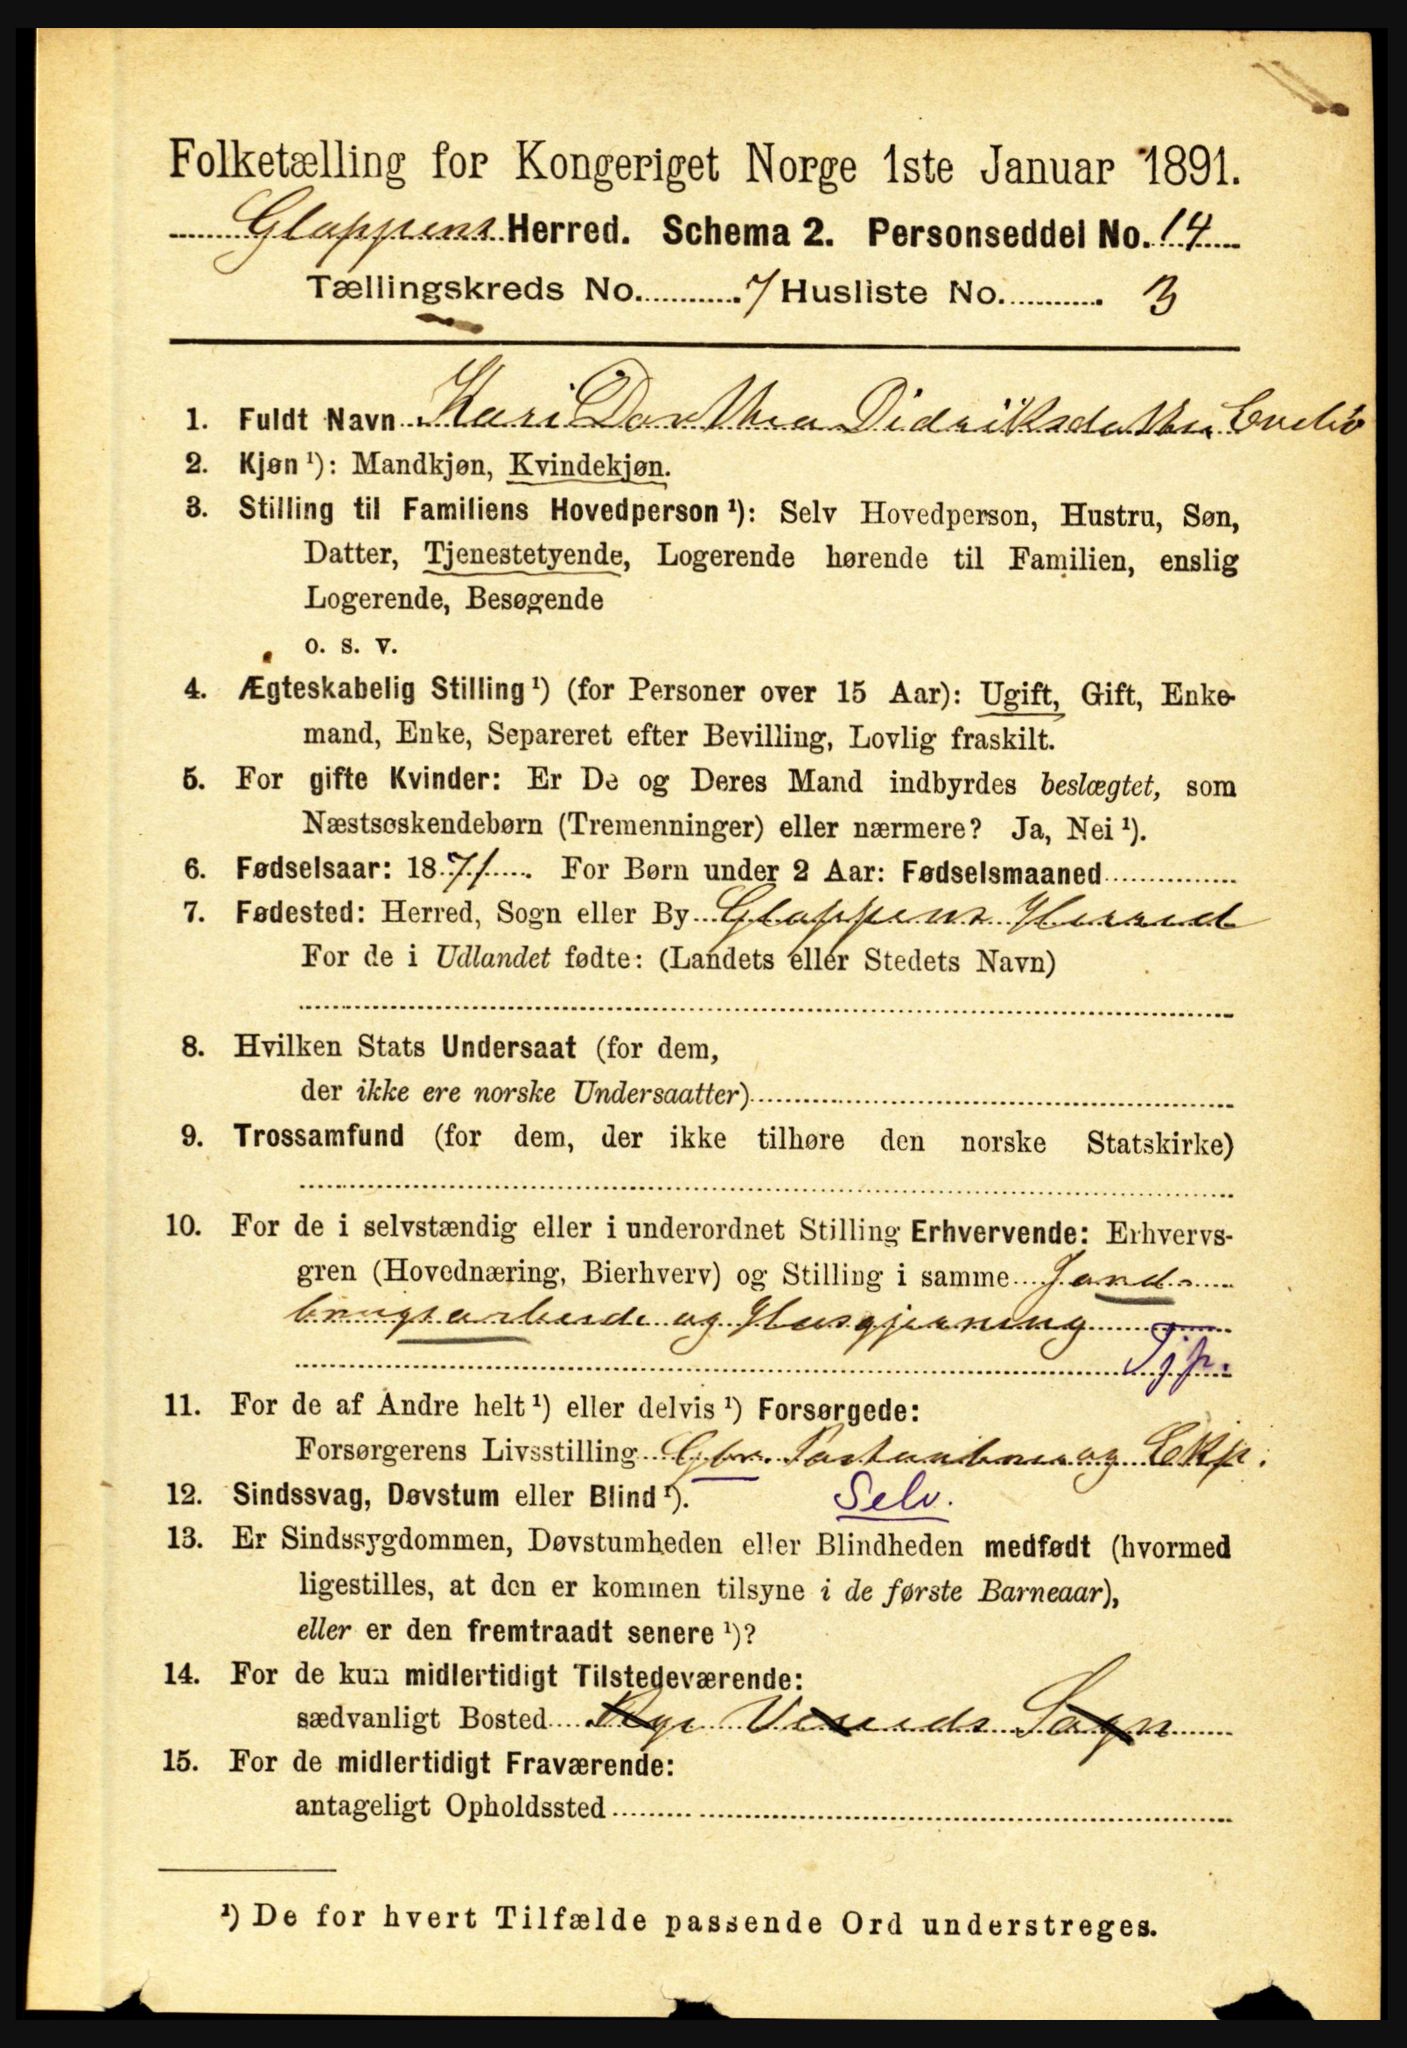 Folketælling for Kongeriget Norge 1ste Januar 1891.
Gloppens Herred. Schema 2. Personseddel No. 14
Tællingskreds No. 7 Husliste No. 3
1. Fuldt Navn Kari Dorthea Didriksdatter
2. Kjøn ¹): Mandkjøn, Kvindekjøn.
3. Stilling til Familiens Hovedperson ¹): Selv Hovedperson, Hustru, Søn,
Datter, Tjenestetyende, Logerende hørende til Familien, enslig
Logerende, Besøgende
o. s. v.
4. Ægteskabelig Stilling ¹) (for Personer over 15 Aar): Ugift, Gift, Enke-
mand, Enke, Separeret efter Bevilling, Lovlig fraskilt.
5. For gifte Kvinder: Er De og Deres Mand indbyrdes beslægtet, som
Næstsøskendebørn (Tremenninger) eller nærmere? Ja, Nei ¹).
6. Fødselsaar: 1871. For Børn under 2 Aar: Fødselsmaaned
7. Fødested: Herred, Sogn eller By Gloppens Herred
For de i Udlandet fødte: (Landets eller Stedets Navn)
8. Hvilken Stats Undersaat (for dem,
der ikke ere norske Undersaatter)
9. Trossamfund (for dem, der ikke tilhøre den norske Statskirke)
10. For de i selvstændig eller i underordnet Stilling Erhvervende: Erhvervs-
gren (Hovednæring, Bierhverv) og Stilling i samme Jord-
brugsarbeide og Husgjerning
Tjp.
11. For de af Andre helt ¹) eller delvis ¹) Forsørgede:
Forsørgerens Livsstilling Gbr. og
12. Sindssvag, Døvstum eller Blind ¹). Selv.
13. Er Sindssygdommen, Døvstumheden eller Blindheden medfødt (hvormed
ligestilles, at den er kommen tilsyne i de første Barneaar),
eller er den fremtraadt senere ¹)?
14. For de kun midlertidigt Tilstedeværende:
sædvanligt Bosted Sogn
15. For de midlertidigt Fraværende:
antageligt Opholdssted
¹) De for hvert Tilfælde passende Ord understreges.